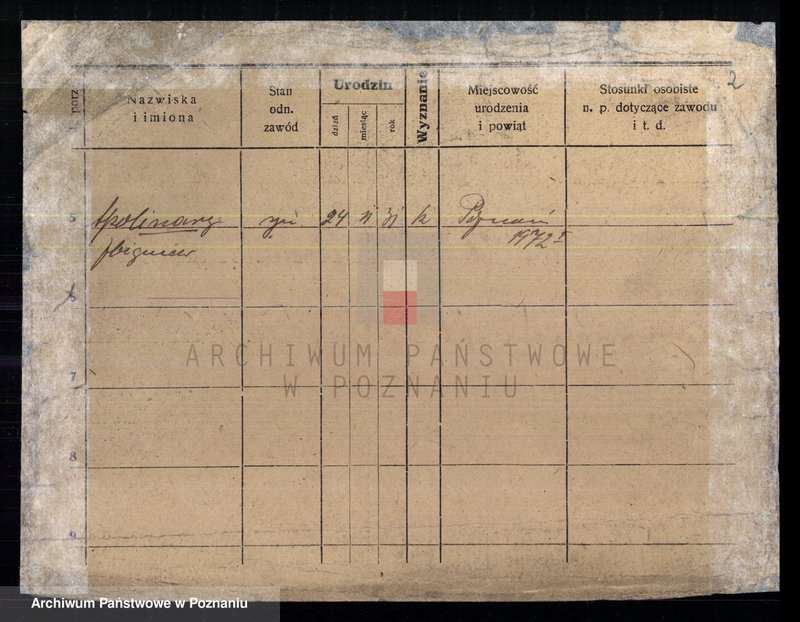 2
L. porz.
Nazwiska
i imiona
Stan
odn.
zawód
Urodzin
dzień
miesiąc
rok
Wyznanie
Miejscowość
urodzenia
i powiat
Stosunki osobiste
n. p. dotyczące zawodu
i t. d.
5 Apolinary 24 31 k Poznań
Zbigniew 1972 I
6
ARCHIWUM PAŃSTWOWE
W POZNANIU
7
8
9
Archiwum Państwowe w Poznaniu